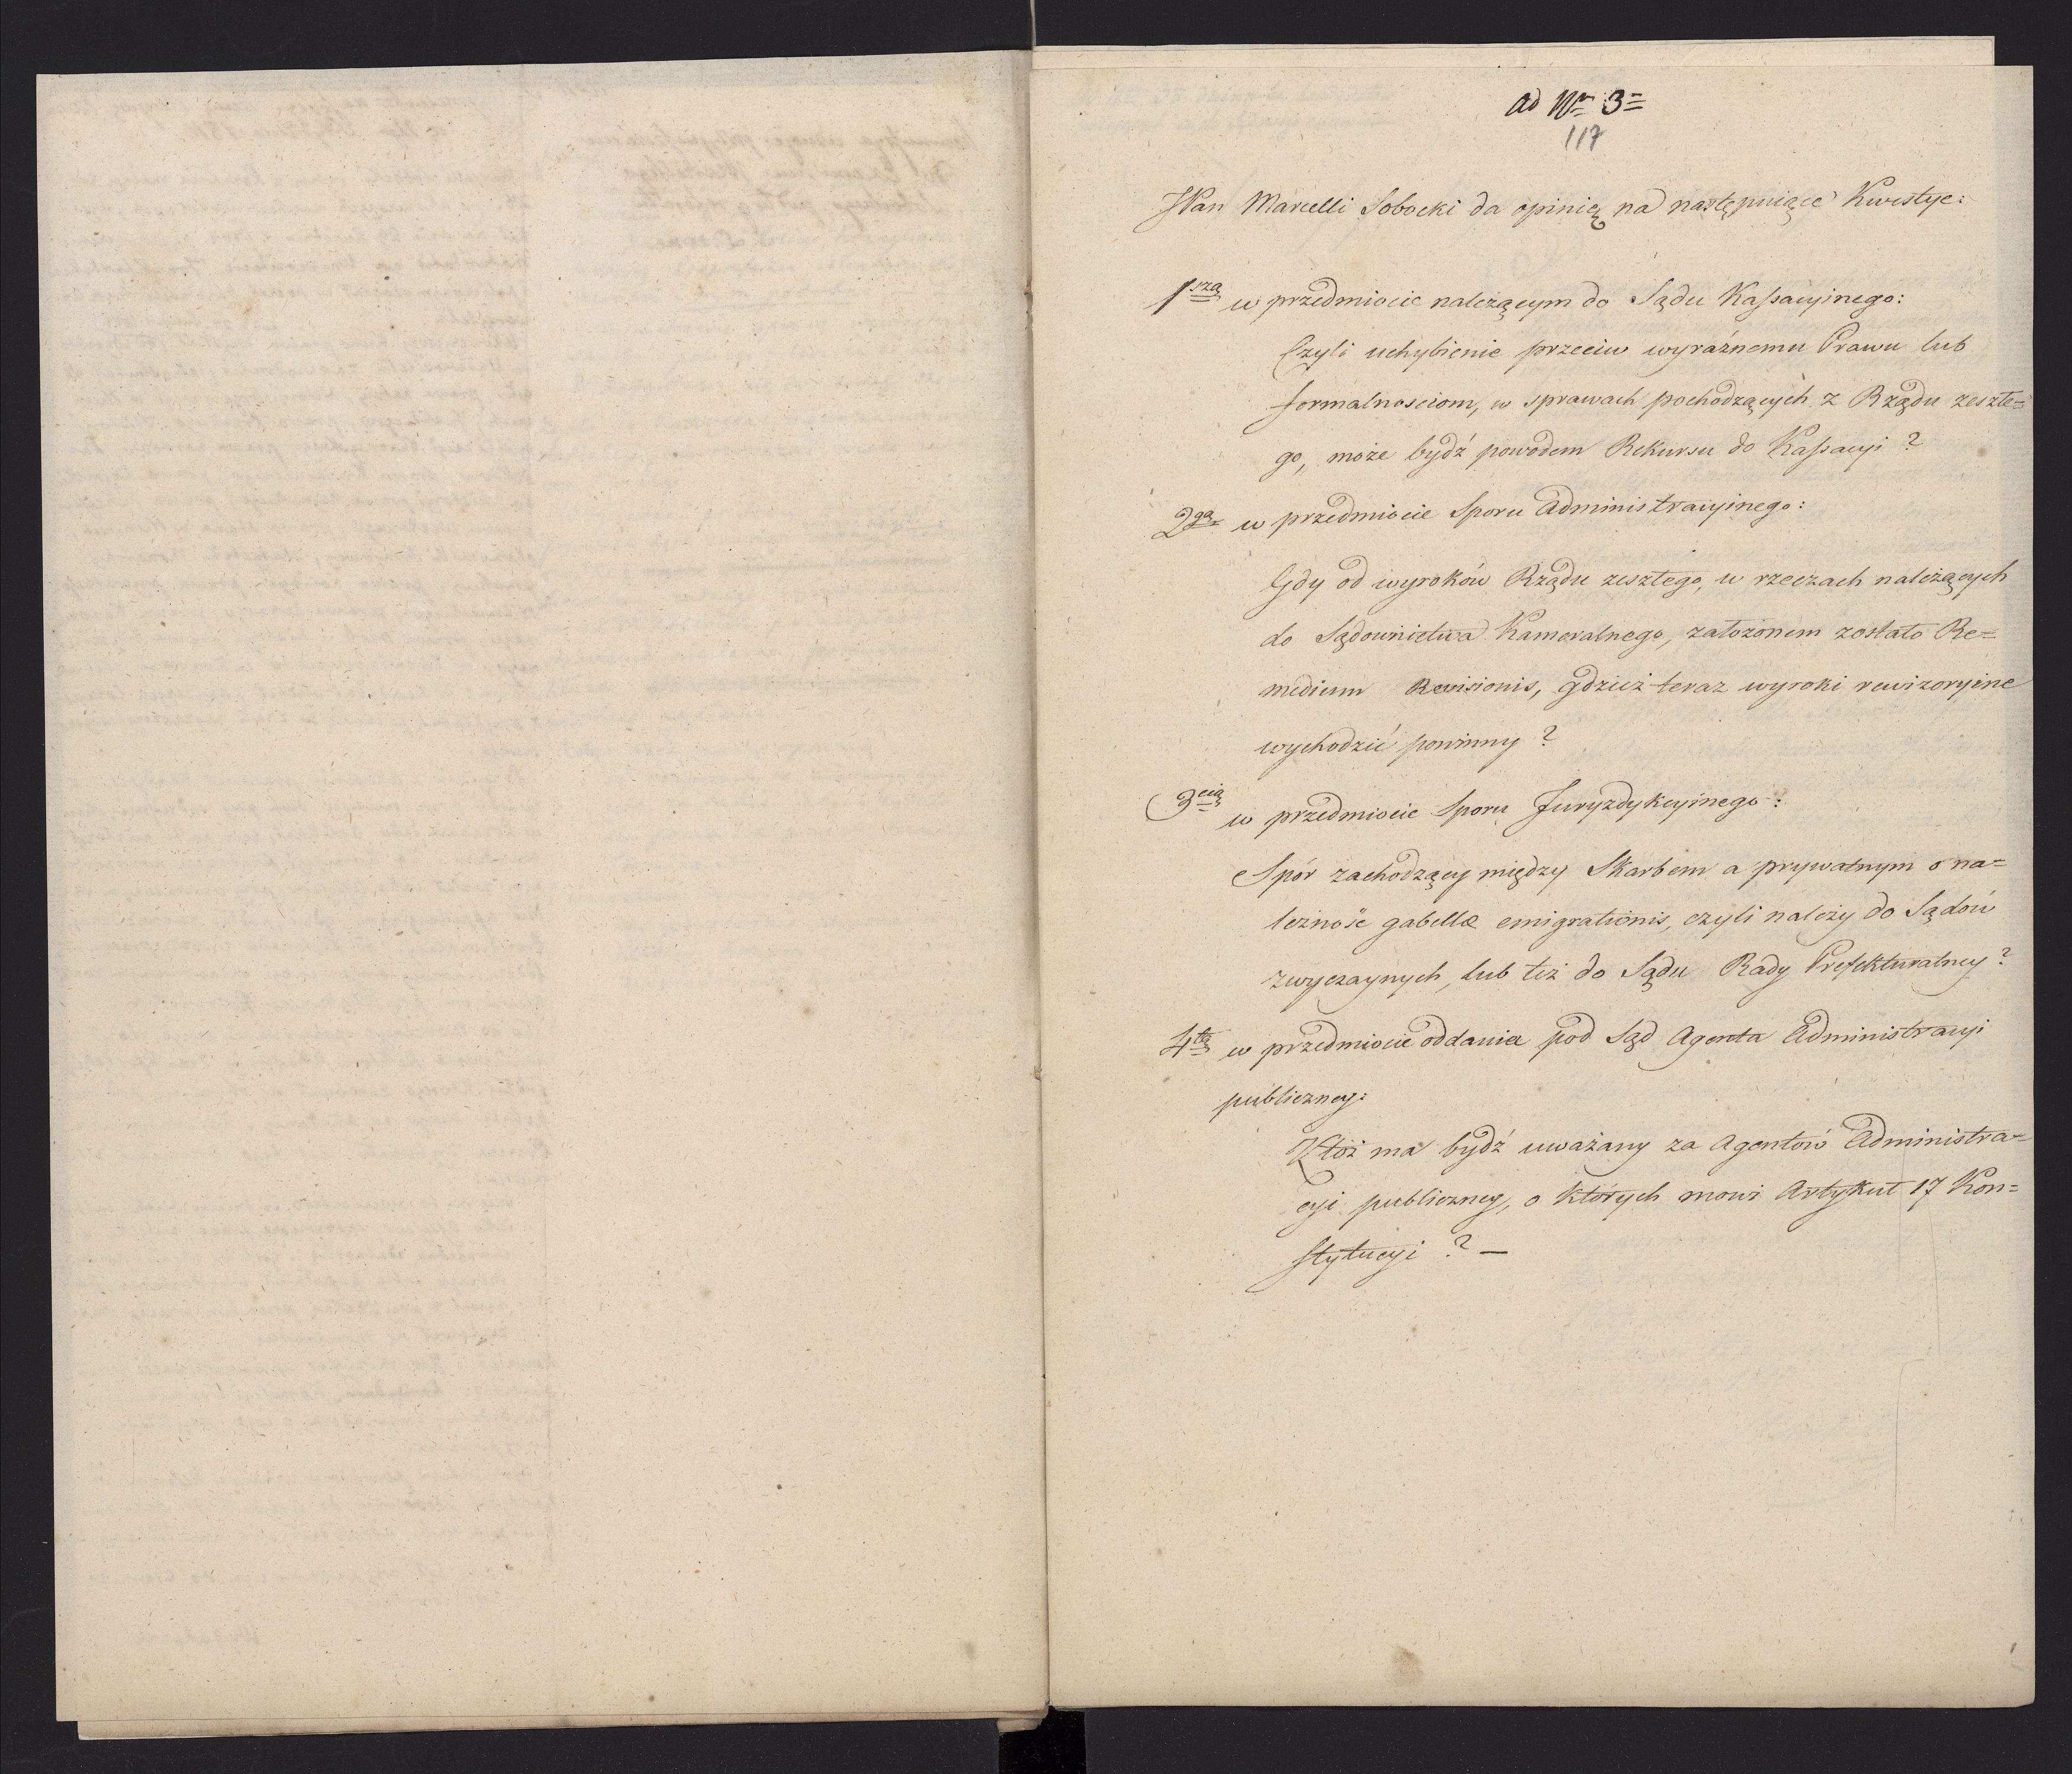 ad Nr 3=
117
JPan Marcelli Sobocki da opinię na następuiące Kwestye:
1sza w przedmiocie należącym do Sądu Kassacyinego:
Czyli uchybienie przeciw wyraźnemu Prawu lub
formalnosciom, w sprawach pochodzących z Rządu zeszłe=
go, może bydź powodem Rekursu do Kassacyi?
2ga w przedmiocie Sporu Administracyinego:
Gdy od wyroków Rządu zeszłego, w rzeczach należących
do Sądownictwa Kameralnego, założonem zostało Re=
medium Revisionis, gdzież teraz wyroki rewizoryine
wychodzić powinny?
3cia w przedmiocie Sporu Juryzdykcyinego:
Spór zachodzący między Skarbem a prywatnym o na=
leżność gabellæ emigrationis, czyli należy do Sądów
zwyczaynych, lub też do Sądu Rady Prefekturalney?
4ta w przedmiocie oddania pod Sąd Agenta Administracyi
publiczney:
Któż ma bydź uważany za Agentów Administra=
cyi publiczney, o których mowi Artykuł 17 Kon=
stytucyi? —